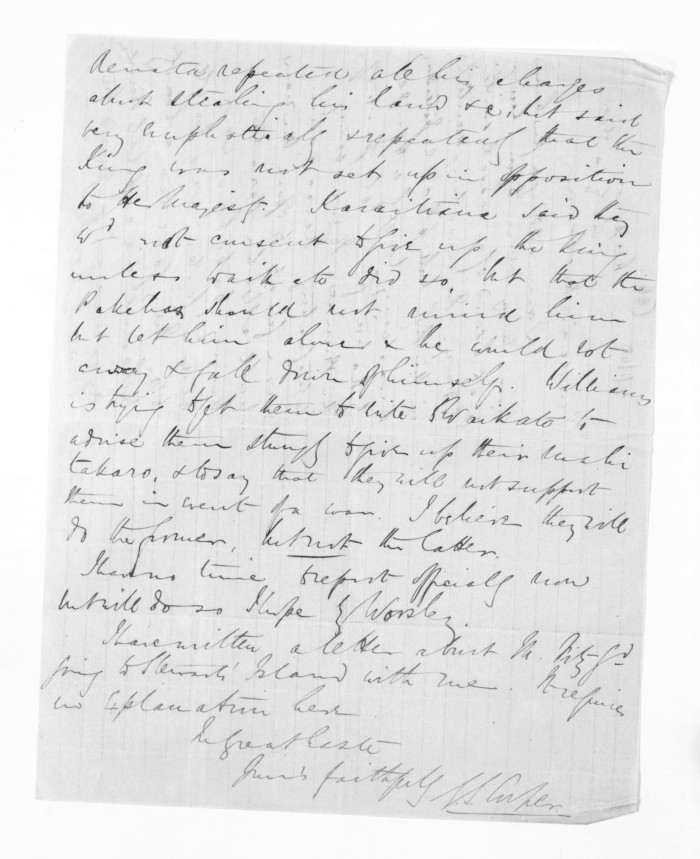 Renata repeated all his charges
about stealing his land &c, but said
very emphatically & repeatedly that the
King was not set up in opposition
to Her Majesty. Karaitiana said they
wd. not consent to give up the King
unless Waikato did so, but that the
Pakehas should not mind him
but let him alone & he would rot
away & fall down of himself. Williams
is trying to get them to write to Waikato to
advise them strongly to give up their mahi
takaro, & to say that they will not support
them in event of a war. I believe they will
do the former, but not the latter.
I have no time to report officially now
but will do so I hope by Worsley.
I have written a letter about M. Fitz Gd
going to Stewart's Island with me. It requires
no explanation here
In great haste
Yours faithfully G S Cooper